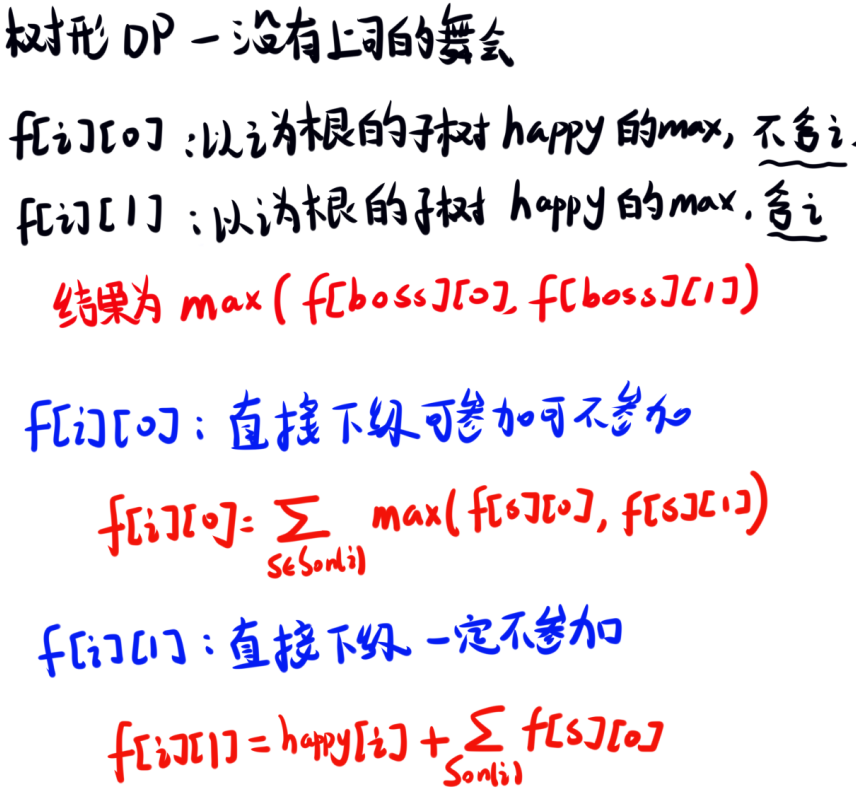 树形 DP — 没有上司的舞会
f[i][0] : 以i为根的子树 happy 的max, 不含i.
f[i][1] : 以i为根的子树 happy 的max. 含i
结果为 max( f[boss][0], f[boss][1])
f[i][0] : 直接下级可参加可不参加
f[i][0] = ∑ max( f[s][0], f[s][1])
s∈Son(i)
f[i][1] : 直接下级 一定不参加
f[i][1] = happy[i] + ∑ f[s][0]
Son(i)